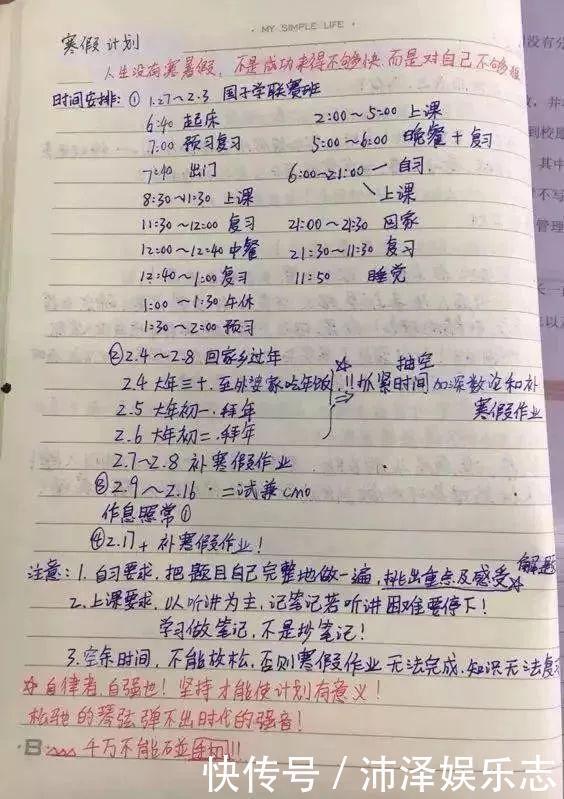 MY SIMPLE LIFE
寒假计划
人生没有寒暑假,不是成功来得不够快而是对自己不够狠
时间安排:① 1.27~2.3 国子学联赛班
6:40 起床 2:00~5:00 上课
7:00 预习复习 5:00~6:00 晚餐+复习
7:40 出门 6:00~21:00 一 自习
8:30~11:30 上课 \ 上课
11:30~12:00 复习 21:00~21:30 回家
12:00~12:40 中餐 21:30~11:30 复习
12:40~1:00 复习 11:50 睡觉
1:00~1:30 午休
1:30~2:00 预习
② 2.4~2.8 回家乡过年
2.4 大年三十.至外婆家吃年饭 !! 抓紧时间 抽空 加深数论和补
2.5 大年初一.拜年 寒假作业
2.6 大年初二.拜年
2.7~2.8 补寒假作业
③ 2.9~2.16.二试兼CMO
作息照常①
④ 2.17+ 补寒假作业!
注意:1.自习要求,把题目自己完整地做一遍,挑出重点及感受☆解题
2.上课要求,以听讲为主,记笔记若听讲困难要停下!
学习做笔记,不是抄笔记!
3.空余时间,不能放松,否则寒假作业无法完成,知识无法复
☆自律者,自强也!坚持才能使计划有意义!
松驰的琴弦弹不出时代的强音!
千万不能碰手机!!!
快传号/沛泽娱乐志
没有分
并
到校
其中
不写
管理
长一
以